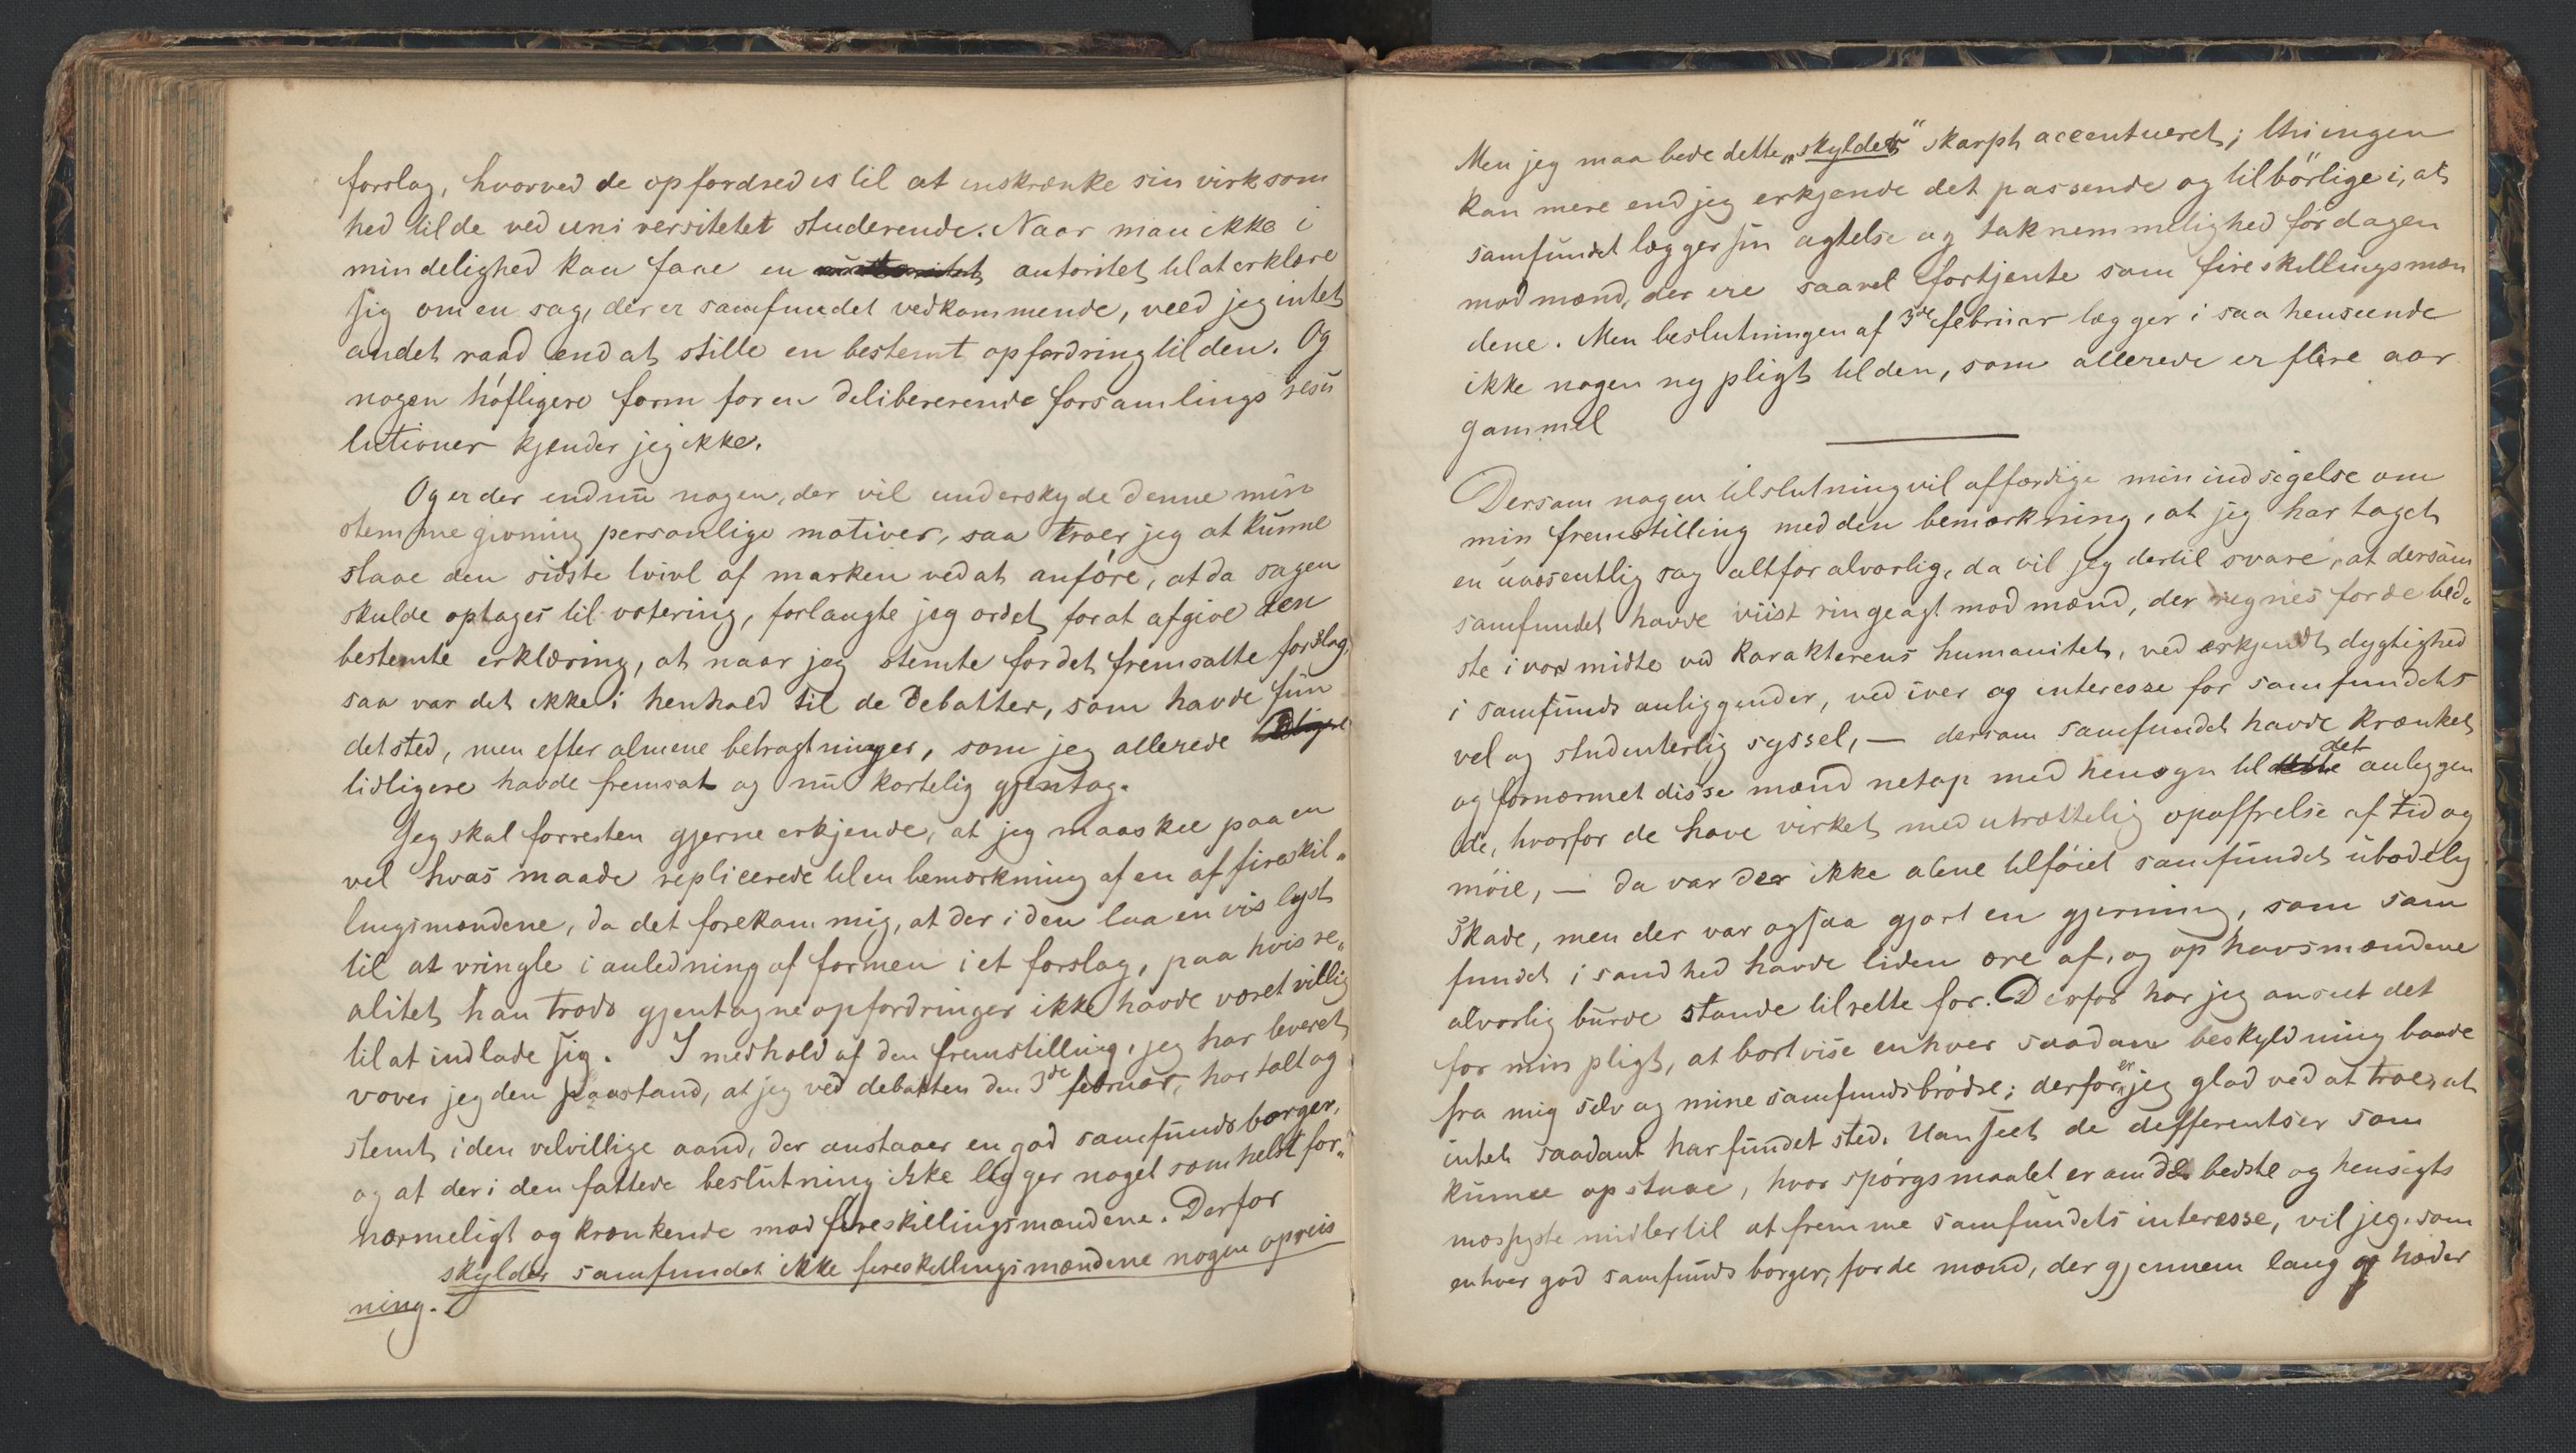 forslag, hvorved de opfordredes til at inskrænke sin virksom
hed til de ved universitetet studerende. Naar man ikke i
mindelighed kan faae en autoritet til at erklære
sig om en sag, der er samfundet vedkommende, veed jeg intet
andet raad end at stille en bestemt opfordring til den. Og
nogen höfligere form for en delibererende forsamlings resu
lutioner kjender jeg ikke.
Og er der endnu nogen, der vil underskyde denne min
stemmegivning personlige motiver, saa troer jeg at kunne
slaae den sidste tvivl af marken ved at anföre, at da sagen
skulde optages til votering, forlangte jeg ordet for at afgive den
bestemte erklæring, at naar jeg stemte for det fremsatte forslag,
saa var det ikke i henhold til de debatter, som havde fun
det sted, men efter almene betragtninger, som jeg allerede
tidligere havde fremsat og nu kortelig gjentog.
Jeg skal forresten gjerne erkjende, at jeg maaskee paa en
vel hvas maade replicerede til en bemærkning af en af fireskil„
lingsmændene, da det forekom mig, at der i den laa en vis lyst
til at vringle i anledning af formen i et forslag, paa hvis re„
alitet han trods gjentagne opfordringer ikke havde været villig
til at indlade sig. I medhold af den fremstilling, jeg har leveret
vover jeg den paastand, at jeg ved debatten den 3de februar, har talt og
stemt i den velvillige aand, der anstaaer en god samfundsborger,
og at der i den fattede beslutning ikke ligger noget somhelst for„
nærmeligt og krænkende mod fireskillingsmændene. Derfor
skylder samfundet ikke fireskillingsmændene nogen opreis
ning.
Men jeg maa bede dette „skylder" skarpt accentueret; thi ingen
kan mere end jeg erkjende det passende og tilbörlige i, at
samfundet lægger sin agtelse og taknemmelighed for dagen
mod mænd, der ere saavel fortjente som fireskillingsmæn
dene. Men beslutningen af 3de februar lægger i saa henseende
ikke nogen ny pligt til den, som allerede er flere aar
gammel
Dersom nogen tilslutning vil affærdige min indsigelse om
min fremstilling med den bemærkning, at jeg har taget
en uvæsentlig sag altfor alvorlig, da vil jeg dertil svare, at dersom
samfundet havde viist ringeagt mod mænd, der regnes for de bed„
ste i vor midte ved karakterens humanitet, ved erkjendt dygtighed
i samfunds anliggender, ved iver og interesse for samfundets
vel og studenterlig syssel, — dersom samfundet havde krænket
og fornærmet disse mænd netop med hensyn til det anliggen
de, hvorfor de have virket med utrættelig opoffrelse af tid og
möie, — da var der ikke alene tilföiet samfundet ubodelig
skade, men der var ogsaa gjort en gjerning, som sam
fundet i sandhed havde liden ære af, og ophavsmændene
alvorlig burde stande tilrette for. Derfor har jeg anseet det
for min pligt, at bortvise enhver saadan beskyldning baade
fra mig selv og mine samfundsbrödre; derfor er jeg glad ved at troe, at
intet saadant har fundet sted. Uanseet de differentser som
kunne opstaae, hvor spörgsmaalet er om de bedste og hensigts
mæssigste midler til at fremme samfundets interesse, vil jeg, som
enhver god samfunds borger, for de mænd, der gjennem lang og hæder